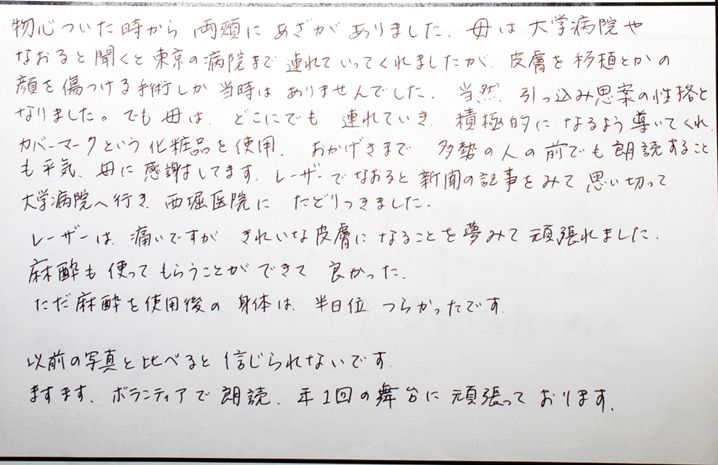 物心ついた時から 両頬に あざがありました. 母は 大学病院や
なおると聞くと東京の病院まで 連れていってくれましたが, 皮膚を移植とかの
顔を傷つける手術しか 当時は ありませんでした. 当然, 引っ込み思案の性格と
なりました。でも母は, どこにでも 連れていき, 積極的に なるよう 導いてくれ,
カバーマークという 化粧品を使用, おかげさまで 多勢の人の前でも朗読すること
も平気, 母に感謝してます. レーザーでなおると新聞の記事をみて 思い切って
大学病院へ行き, 西堀医院に たどりつきました.
レーザーは, 痛いですが きれいな皮膚になることを夢みて 頑張れました.
麻酔も 使ってもらうことができて 良かった.
ただ麻酔を使用後の 身体は, 半日位 つらかったです.
以前の写真と比べると 信じられないです.
ますます, ボランティアで 朗読, 年1回の舞台に 頑張って おります.